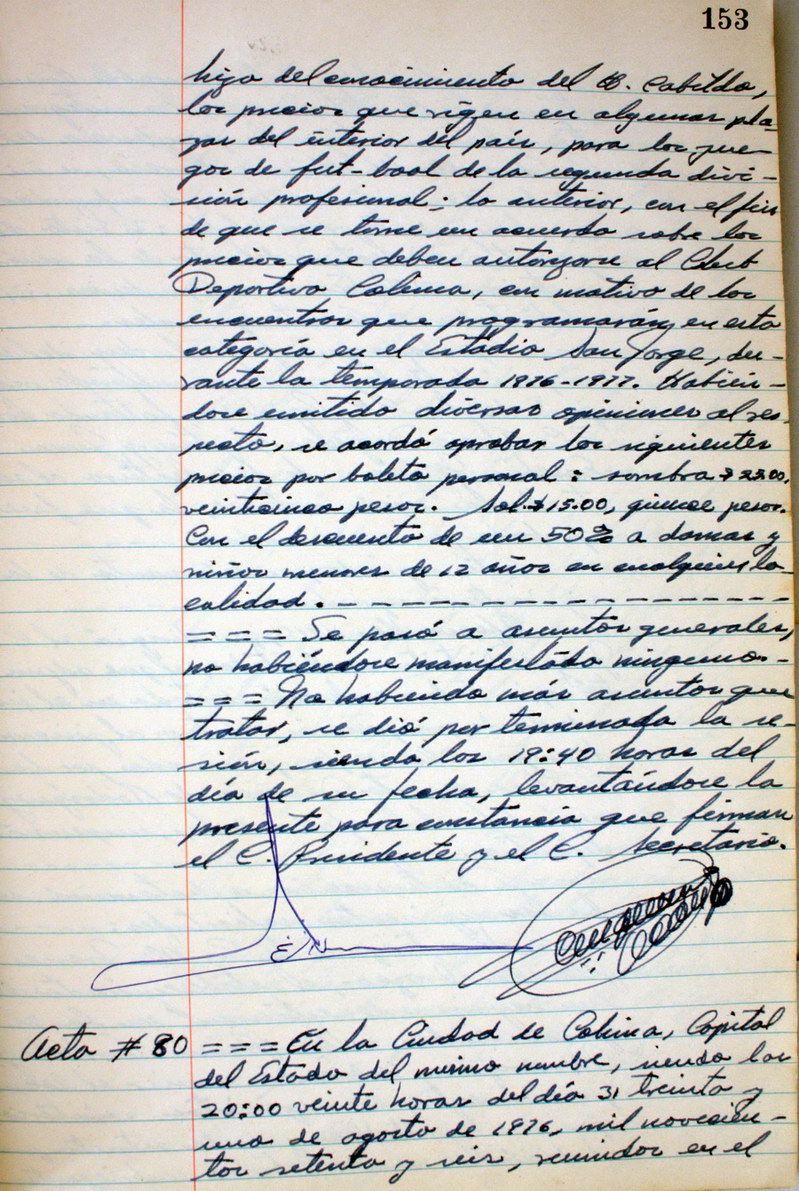 153
hizo del conocimiento del H. Cabildo,
los precios que rigen en algunas pla-
zas del interior del país, para los jue-
gos de fut-bool de la segunda divi-
sión profesional; lo anterior, con el fin
de que se tome un acuerdo sobre los
precios que deben autorizarse al Club
Deportivo Colima, con motivo de los
encuentros que programarán, en esta
categoría en el Estadio San Jorge, du-
rante la temporada 1976-1977. Habién-
dose emitido diversas opiniones al res-
pecto, se acordó aprobar los siguientes
precios por boleto personal: sombra $25.00,
veinticinco pesos. Sol $15.00, quince pesos.
Con el descuento de un 50% a damas y
niños menores de 12 años en cualquier lo-
calidad. - - - - - - - - - - - - - - - -
= = = Se pasó a asuntos generales,
no habiéndose manifestado ninguno. -
= = = No habiendo más asuntos que
tratar, se dió por terminada la se-
sión, siendo las 19:40 horas del
día de su fecha, levantándose la
presente para constancia que firman
el C. Presidente y el C. Secretario.
Acta # 80 = = = En la Ciudad de Colima, Capital
del Estado del mismo nombre, siendo las
20:00 veinte horas del día 31 treinta y
uno de agosto de 1976, mil novecien-
tos setenta y seis, reunidos en el